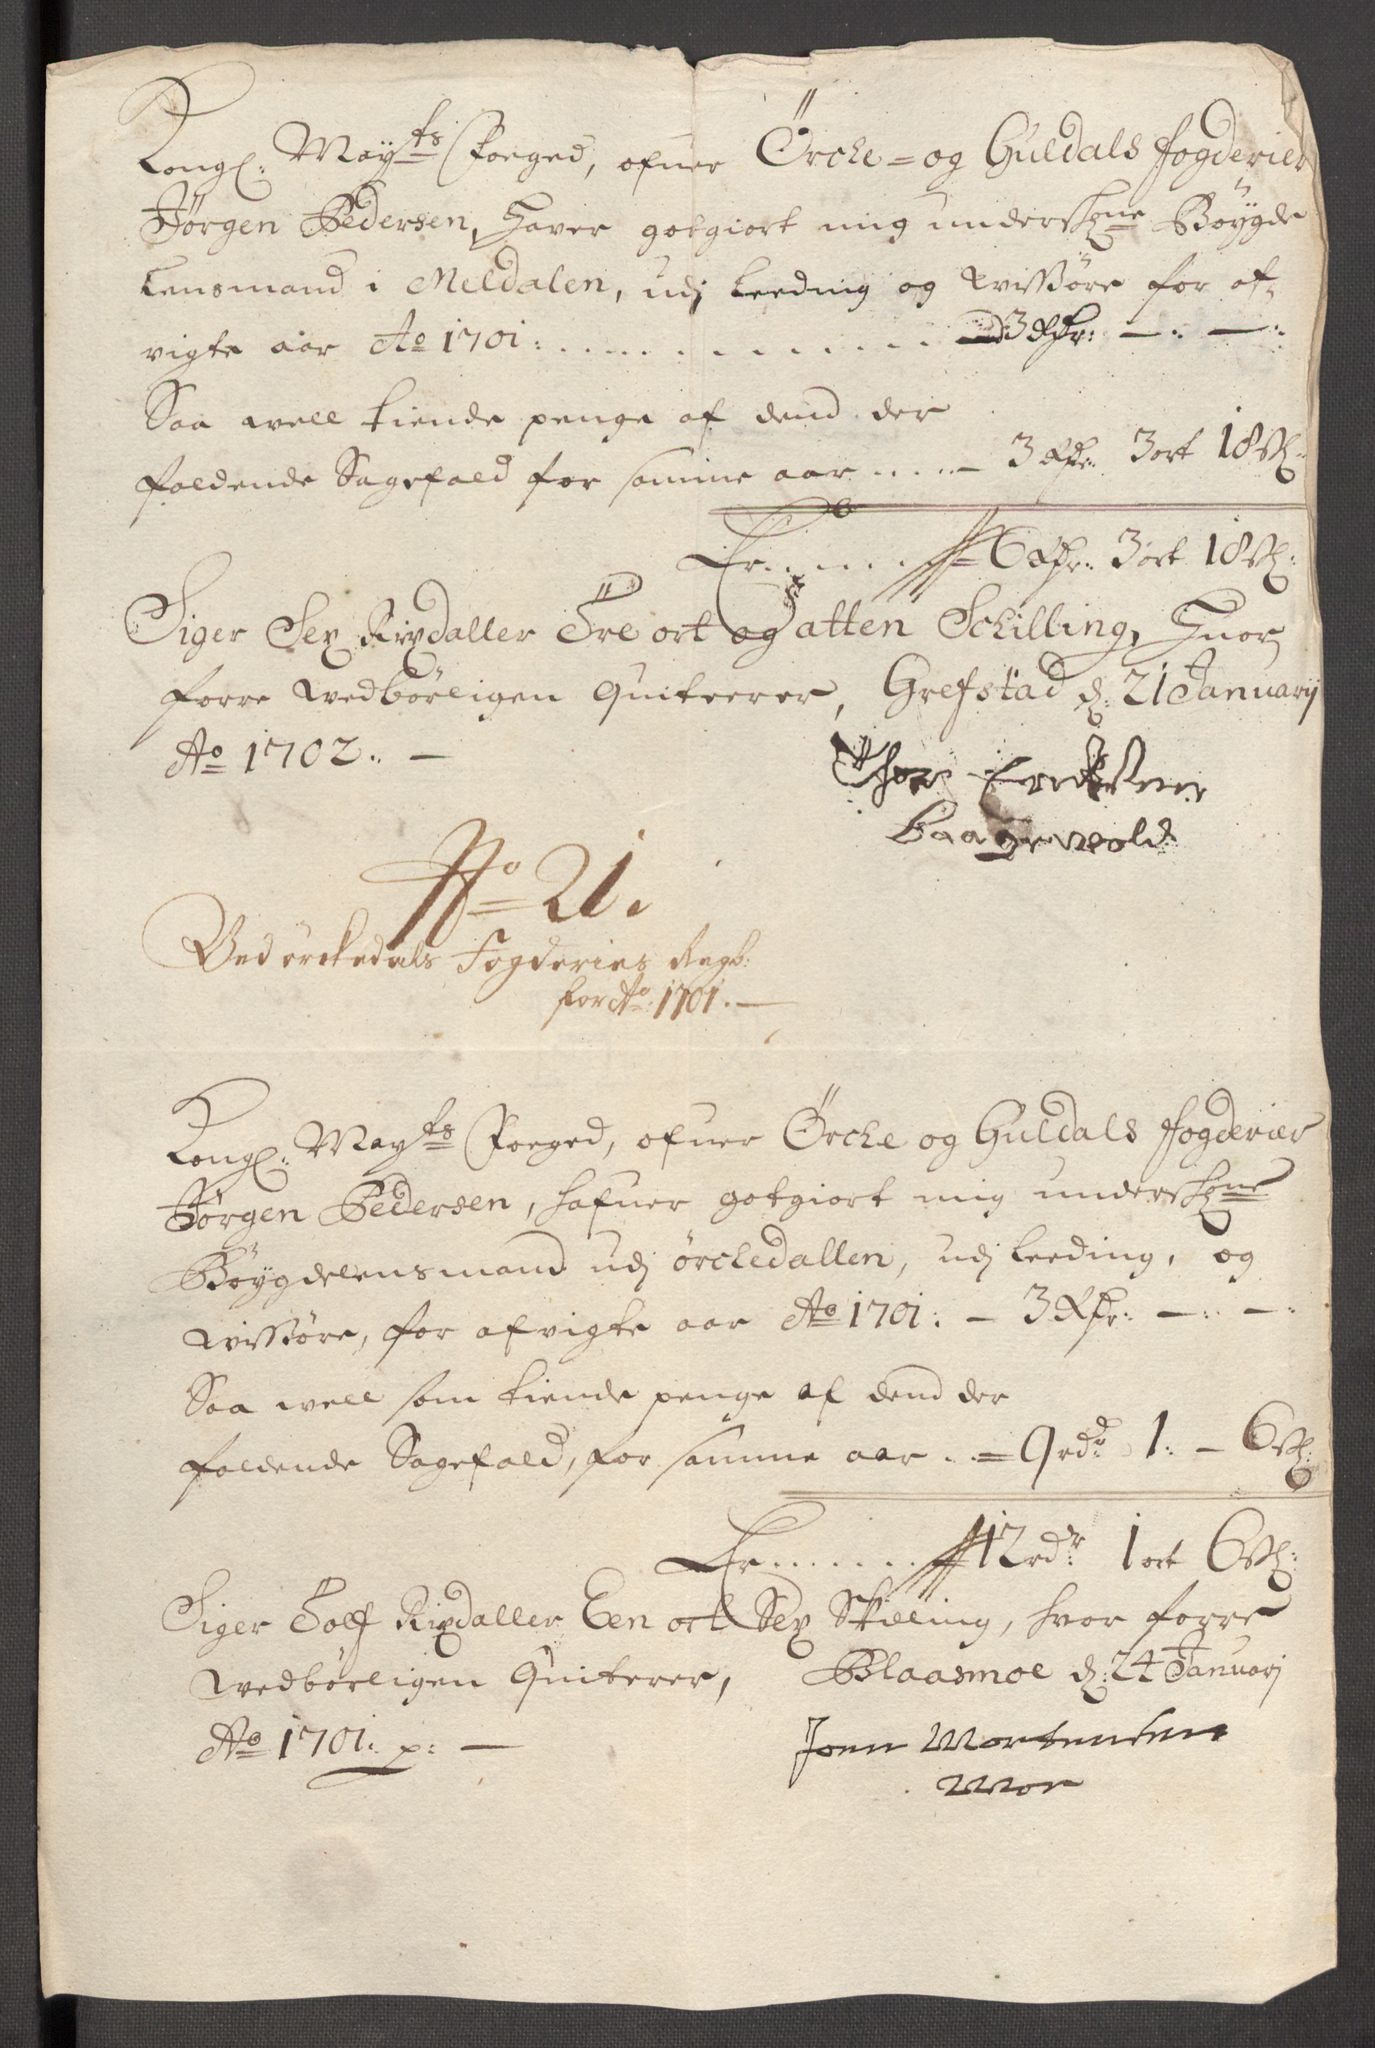 Kongl: May:ts Foeged, ofuer Örche= og Guldals fogderier
Jørgen Pedersen, Haver gotgiort mig undersk:ne Bøygde
Lensmand i Meldalen, udj Leeding og Wissøre for af-
vigte aar A:o 1701: . . . . . . . . . . . 3 Rdr: —: —:
Saa well tiende penge af dend der
faldende Sagefald for samme aar . . . . — 3 Rdr: 3 ort 18 s:
Er . . . . . 6 Rdr: 3 ort 18 s:
Siger Sex Rixdaller Tre ort og atten Schilling, Huor
forre wedbørligen Quiterer, Grefstad d: 21 Januarij
A:o 1702: —
Thor Ericksen
Baagevold
N:o 21.
Ved örckedals Fogderies Regb:
for A:o 1701. —
Kongl: May:ts Foeged, ofuer Örche og Guldals fogderier
Jørgen Pedersen, hafuer gotgiort mig undersk:ne
Bøygdelensmand udj örchedallen, udj Leeding, og
Wissøre, for afvigte aar A:o 1701: — 3 Rdr: —: —:
Saa well som tiende penge af dend der
faldende Sagefald, for samme aar . . = 9 rdr 1: — 6 s:
Er . . . . . . 12 rdr 1 ort 6 s:
Siger Tolf Rixdaller Een ort Sex Skilling, hvor forre
wedbørligen Quiterer, Blaasmoe d: 24 Januarj
A:o 1701: p: —
Joen Mortensen
Mor